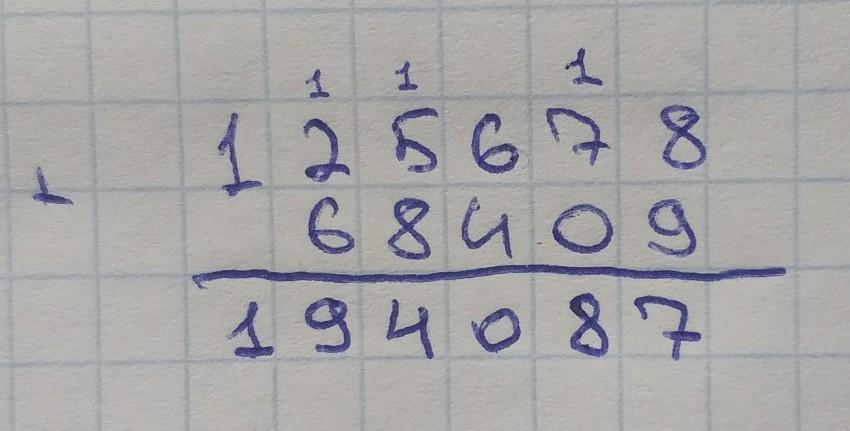 1 1 1
1 2 5 6 7 8
+
6 8 4 0 9
1 9 4 0 8 7